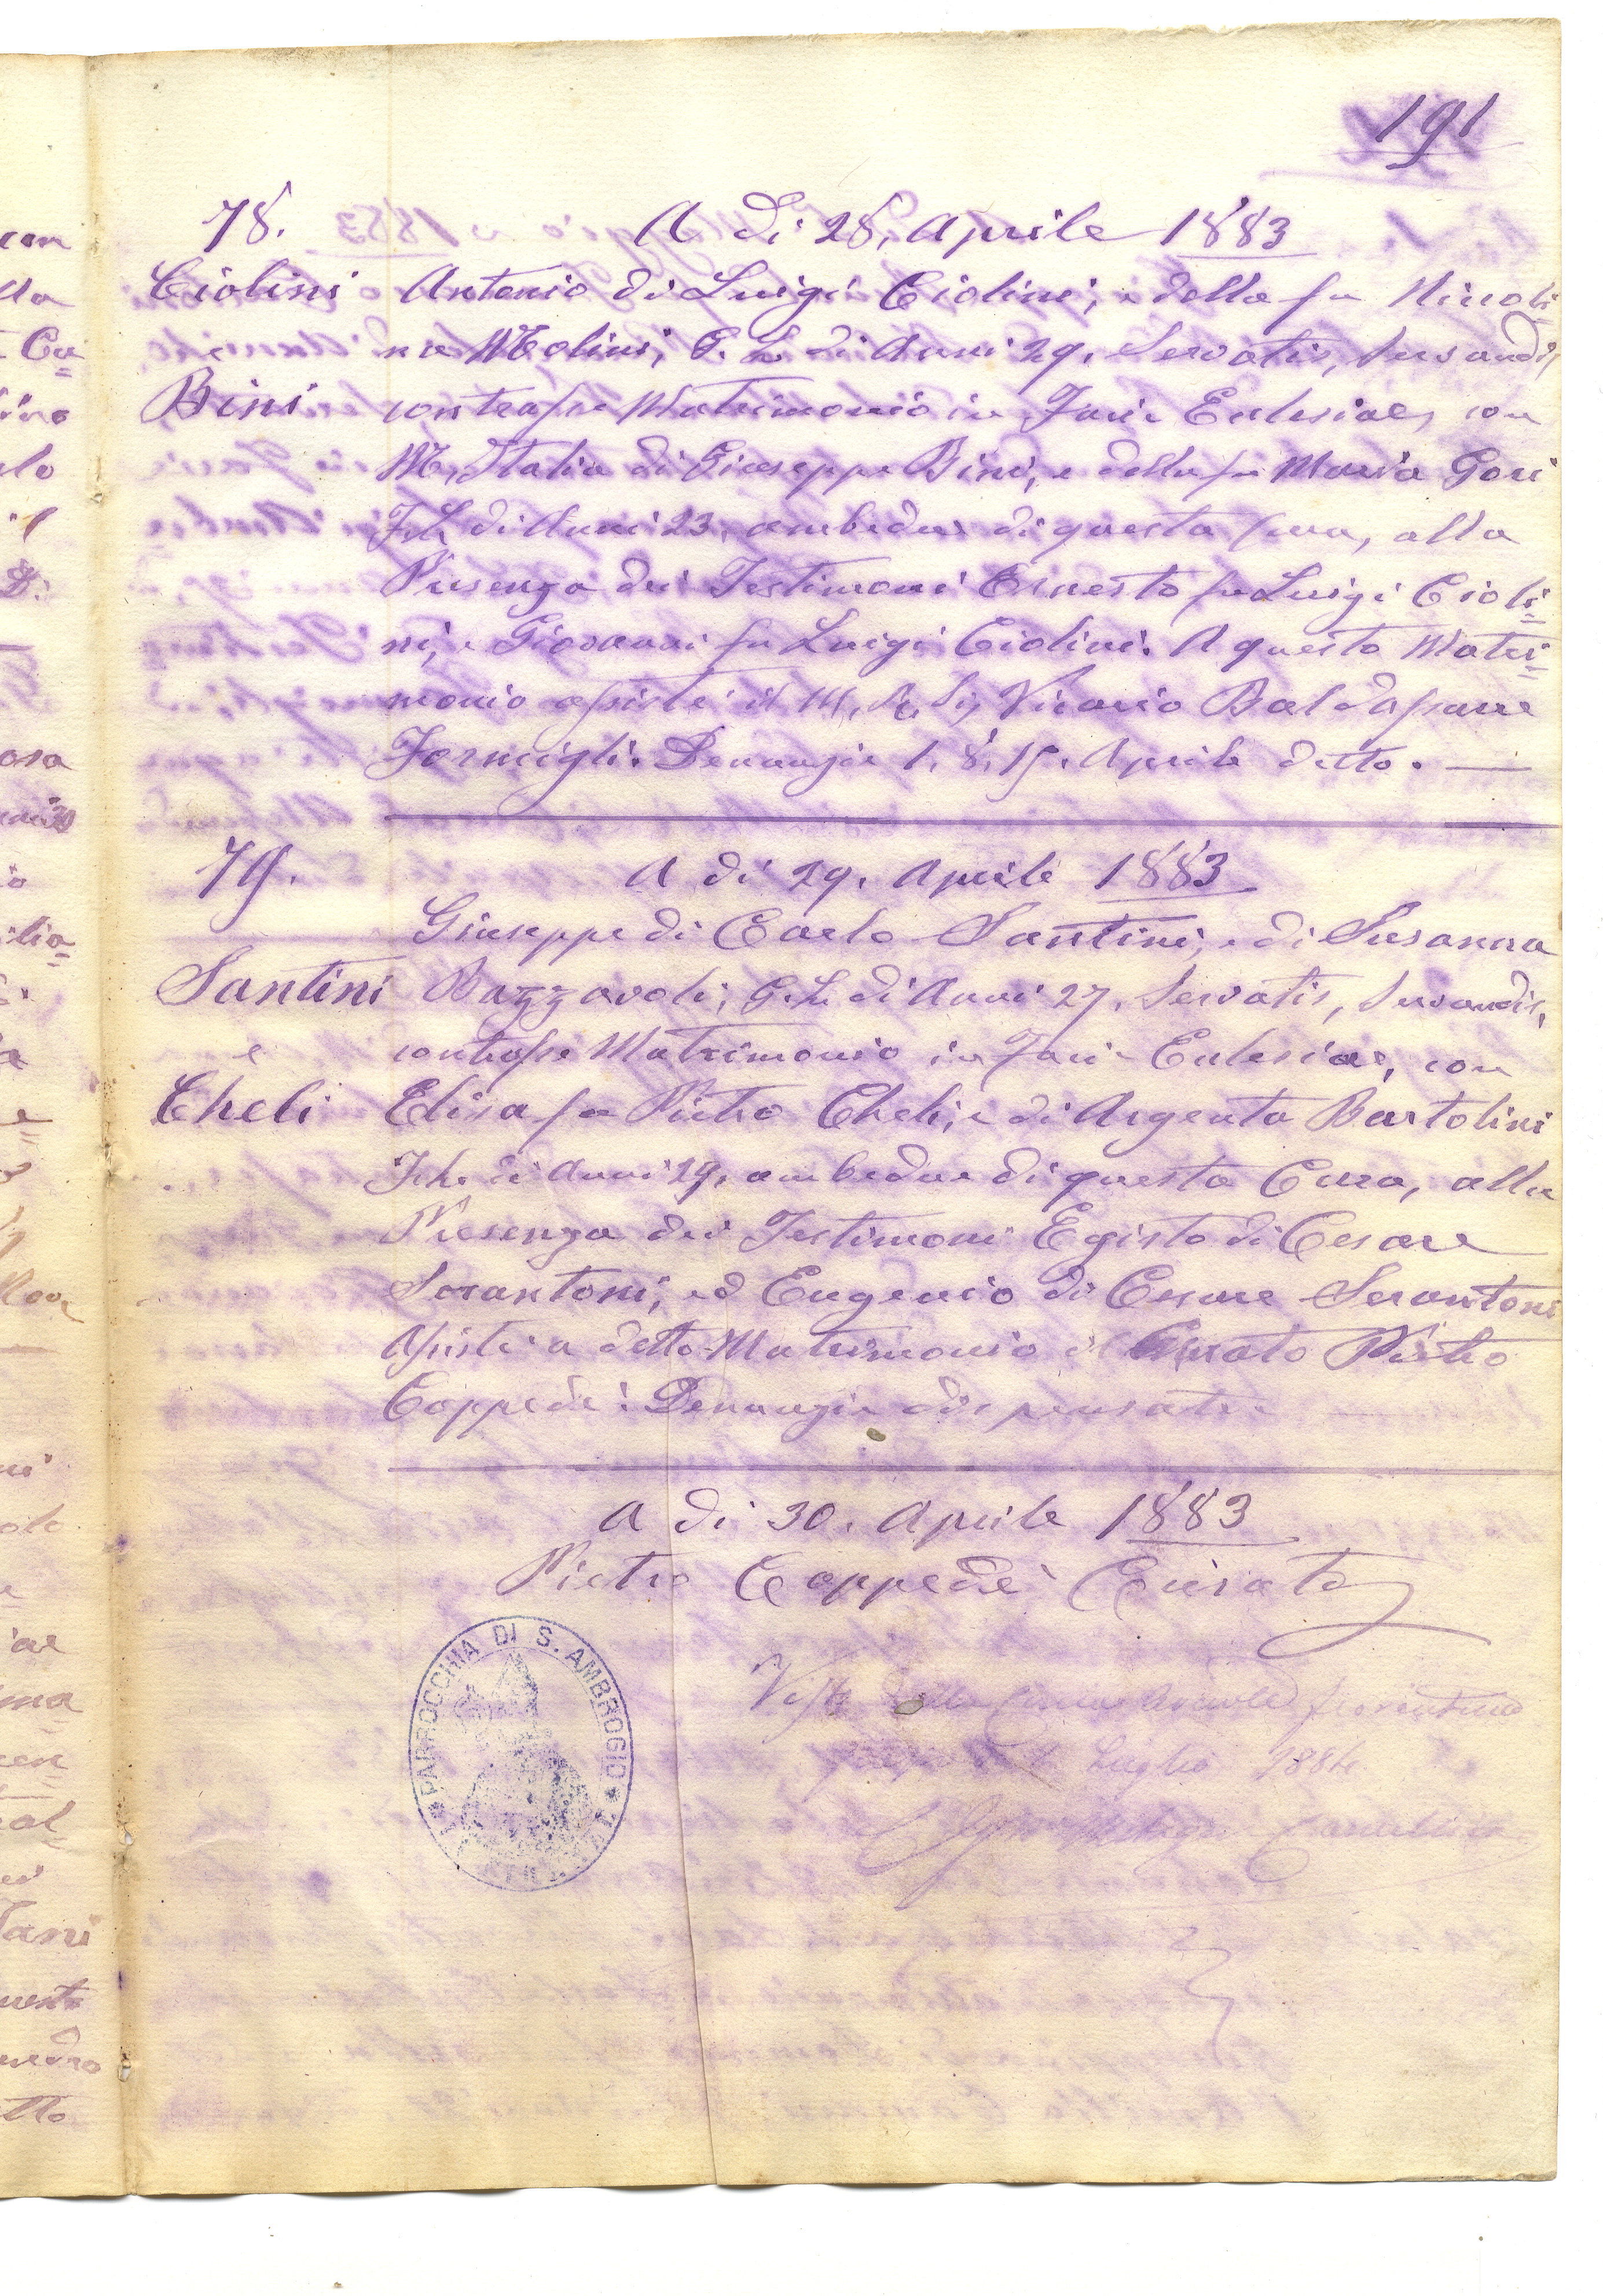 191
78. A dì 28. Aprile 1883
Ciolini Antonio di Luigi Ciolini, e della fu Niccoli=
e na Molini, G. L. di Anni 29. Servatis, servandis,
Bini contrasse Matrimonio in Facie Eclesiae, con
M. Italia di Giuseppe Bini, e della fu Maria Gori
F. L. di Anni 23, ambedue di questa Cura, alla
Presenza dei Testimoni Ernesto fu Luigi Cioli=
ni, e Giovanni fu Luigi Ciolini. A questo Matri=
monio assistè il M. R. Sig. Vicario Baldassarre
Formigli. Denunzie 1, 8, 15. Aprile detto. —
79. A dì 29. Aprile 1883
Giuseppe di Carlo Santini, e di Susanna
Santini Bazzavoli, G. L. di Anni 27. Servatis, servandis,
e contrasse Matrimonio in Facie Eclesiae, con
Cheli Elisa fu Pietro Cheli, e di Argenta Bartolini
F. L. di Anni 29, ambedue di questa Cura, alla
Presenza dei Testimoni Egisto di Cesare
Serantoni, ed Eugenio di Cesare Serantoni
Assistè a detto Matrimonio il Curato Pietro
Coppedè. Denunzie dispensate
A dì 30. Aprile 1883
Pietro Coppedè Curato
PARROCCHIA DI S. AMBROGIO
Visto dalla Curia Arcivle fiorentina
Luglio 1884